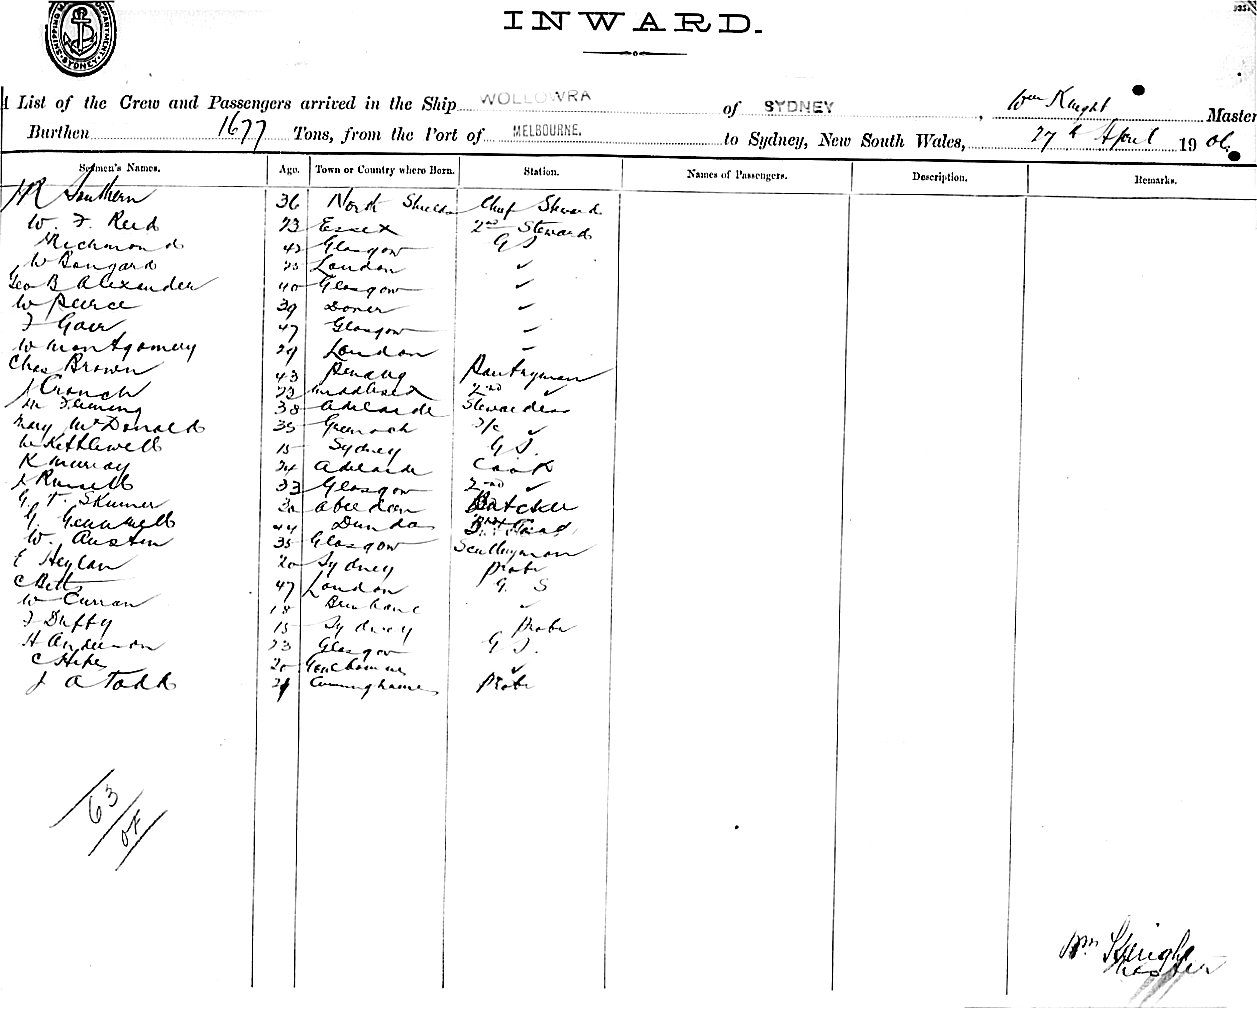 SHIPPING MASTER'S DEPARTMENT SYDNEY
INWARD.
A List of the Crew and Passengers arrived in the Ship WOLLOWRA of SYDNEY, Wm Knight Master
Burthen 1677 Tons, from the Port of MELBOURNE. to Sydney, New South Wales, 27th April 1906
Seamen's Names. Age. Town or Country where Born. Station. Names of Passengers. Description. Remarks.
Southern 36 North Shields Chief Steward
W. F. Reid 23 Essex 2nd Steward
Richmond 42 Glasgow G S
W Bongard 25 London ✓
Geo B Alexander 40 Glasgow ✓
W Peirce 39 Dover ✓
J Gair 47 Glasgow ✓
W Montgomery 29 London ✓
Chas Brown 43 Penang Pantryman
J Cronch 22 Middlesex 2nd ✓
M Fleming 38 Adelaide Stewardess
Mary McDonald 35 Greenock ✓
W Kethlewell 15 Sydney G S.
R Murray 24 Adelaide Cook
J Russell 33 Glasgow 2nd ✓
G. T. Skinner 30 Aberdeen Butcher
G. Gemmell 44 Dundas
W. Austin 35 Glasgow Scullyman
E Heylan 20 Sydney Probr
C Betts 47 London G. S
W Curran 18 Brisbane ✓
J Duffy 15 Sydney Probr
H Anderson 23 Glasgow G S.
C 20 ✓
J A Todd Cunninghame Probr
63/OF
Wm Knight
Master